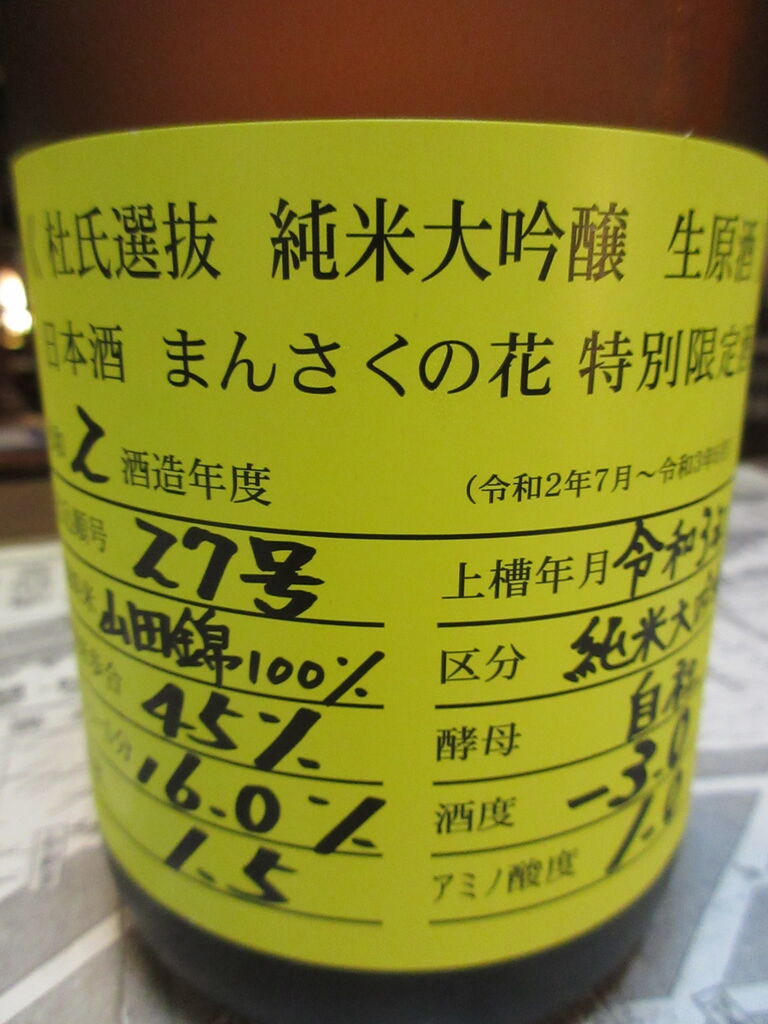 杜氏選抜 純米大吟醸 生原酒
日本酒 まんさくの花 特別限定
2 酒造年度 (令和2年7月～令和3年
順号 27号
上槽年月 令和3年
米 山田錦100%
区分 純米大吟
歩合 45%
酵母 自社
分 16.0%
酒度 -3.0
1.5
アミノ酸度 1.0